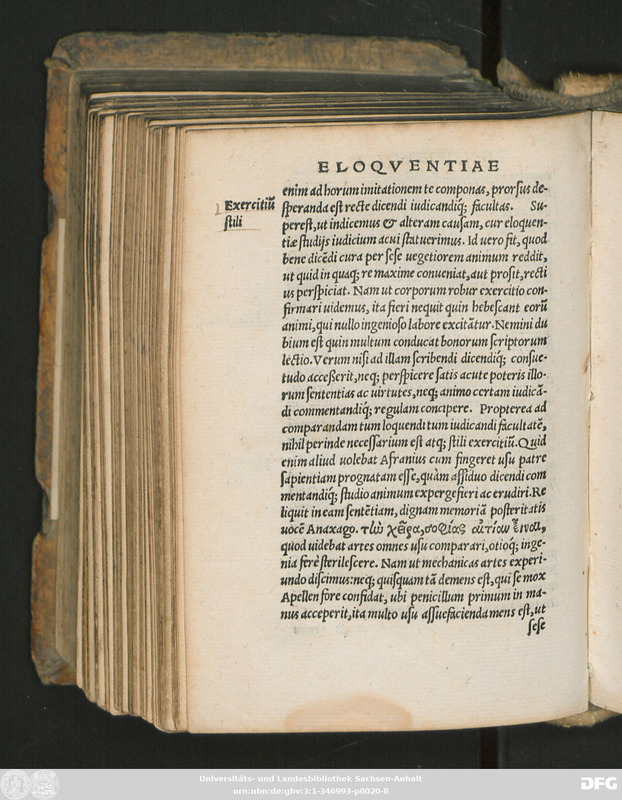 ELOQVENTIAE
enim ad horum imitationem te componas, prorsus de-
Exercitiū
stili
speranda est recte dicendi iudicandiq́; facultas. Su-
perest, ut indicemus & alteram causam, cur eloquen-
tiæ studijs iudicium acui statuerimus. Id uero fit, quod
bene dicēdi cura per sese uegetiorem animum reddit,
ut quid in quaq; re maxime conueniat, aut prosit, recti
us perspiciat. Nam ut corporum robur exercitio con-
firmari uidemus, ita fieri nequit quin hebescant eorū
animi, qui nullo ingenioso labore excitātur. Nemini du
bium est quin multum conducat bonorum scriptorum
lectio. Verum nisi ad illam scribendi dicendiq́; consue-
tudo accesserit, neq; perspicere satis acute poteris illo-
rum sententias ac uirtutes, neq; animo certam iudicā-
di commentandiq́; regulam concipere. Propterea ad
comparandam tum loquendi tum iudicandi facultatē,
nihil perinde necessarium est atq; stili exercitiū. Quid
enim aliud uolebat Afranius cum fingeret usu patre
sapientiam prognatam esse, quàm assiduo dicendi com
mentandiq́; studio animum expergefieri ac erudiri. Re
liquit in eam sentētiam, dignam memoriā posteritatis
uocē Anaxago. τὼ χεῖρα, σοφίας αἰτίαν εἶναι,
quod uidebat artes omnes usu comparari, otioq́; inge-
nia ferè sterilescere. Nam ut mechanicas artes experi-
undo discimus: neq; quisquam tā demens est, qui se mox
Apellen fore confidat, ubi penicillum primum in ma-
nus acceperit, ita multo usu assuefacienda mens est, ut
sese
Universitäts- und Landesbibliothek Sachsen-Anhalt
urn:nbn:de:gbv:3:1-346993-p0020-8
DFG